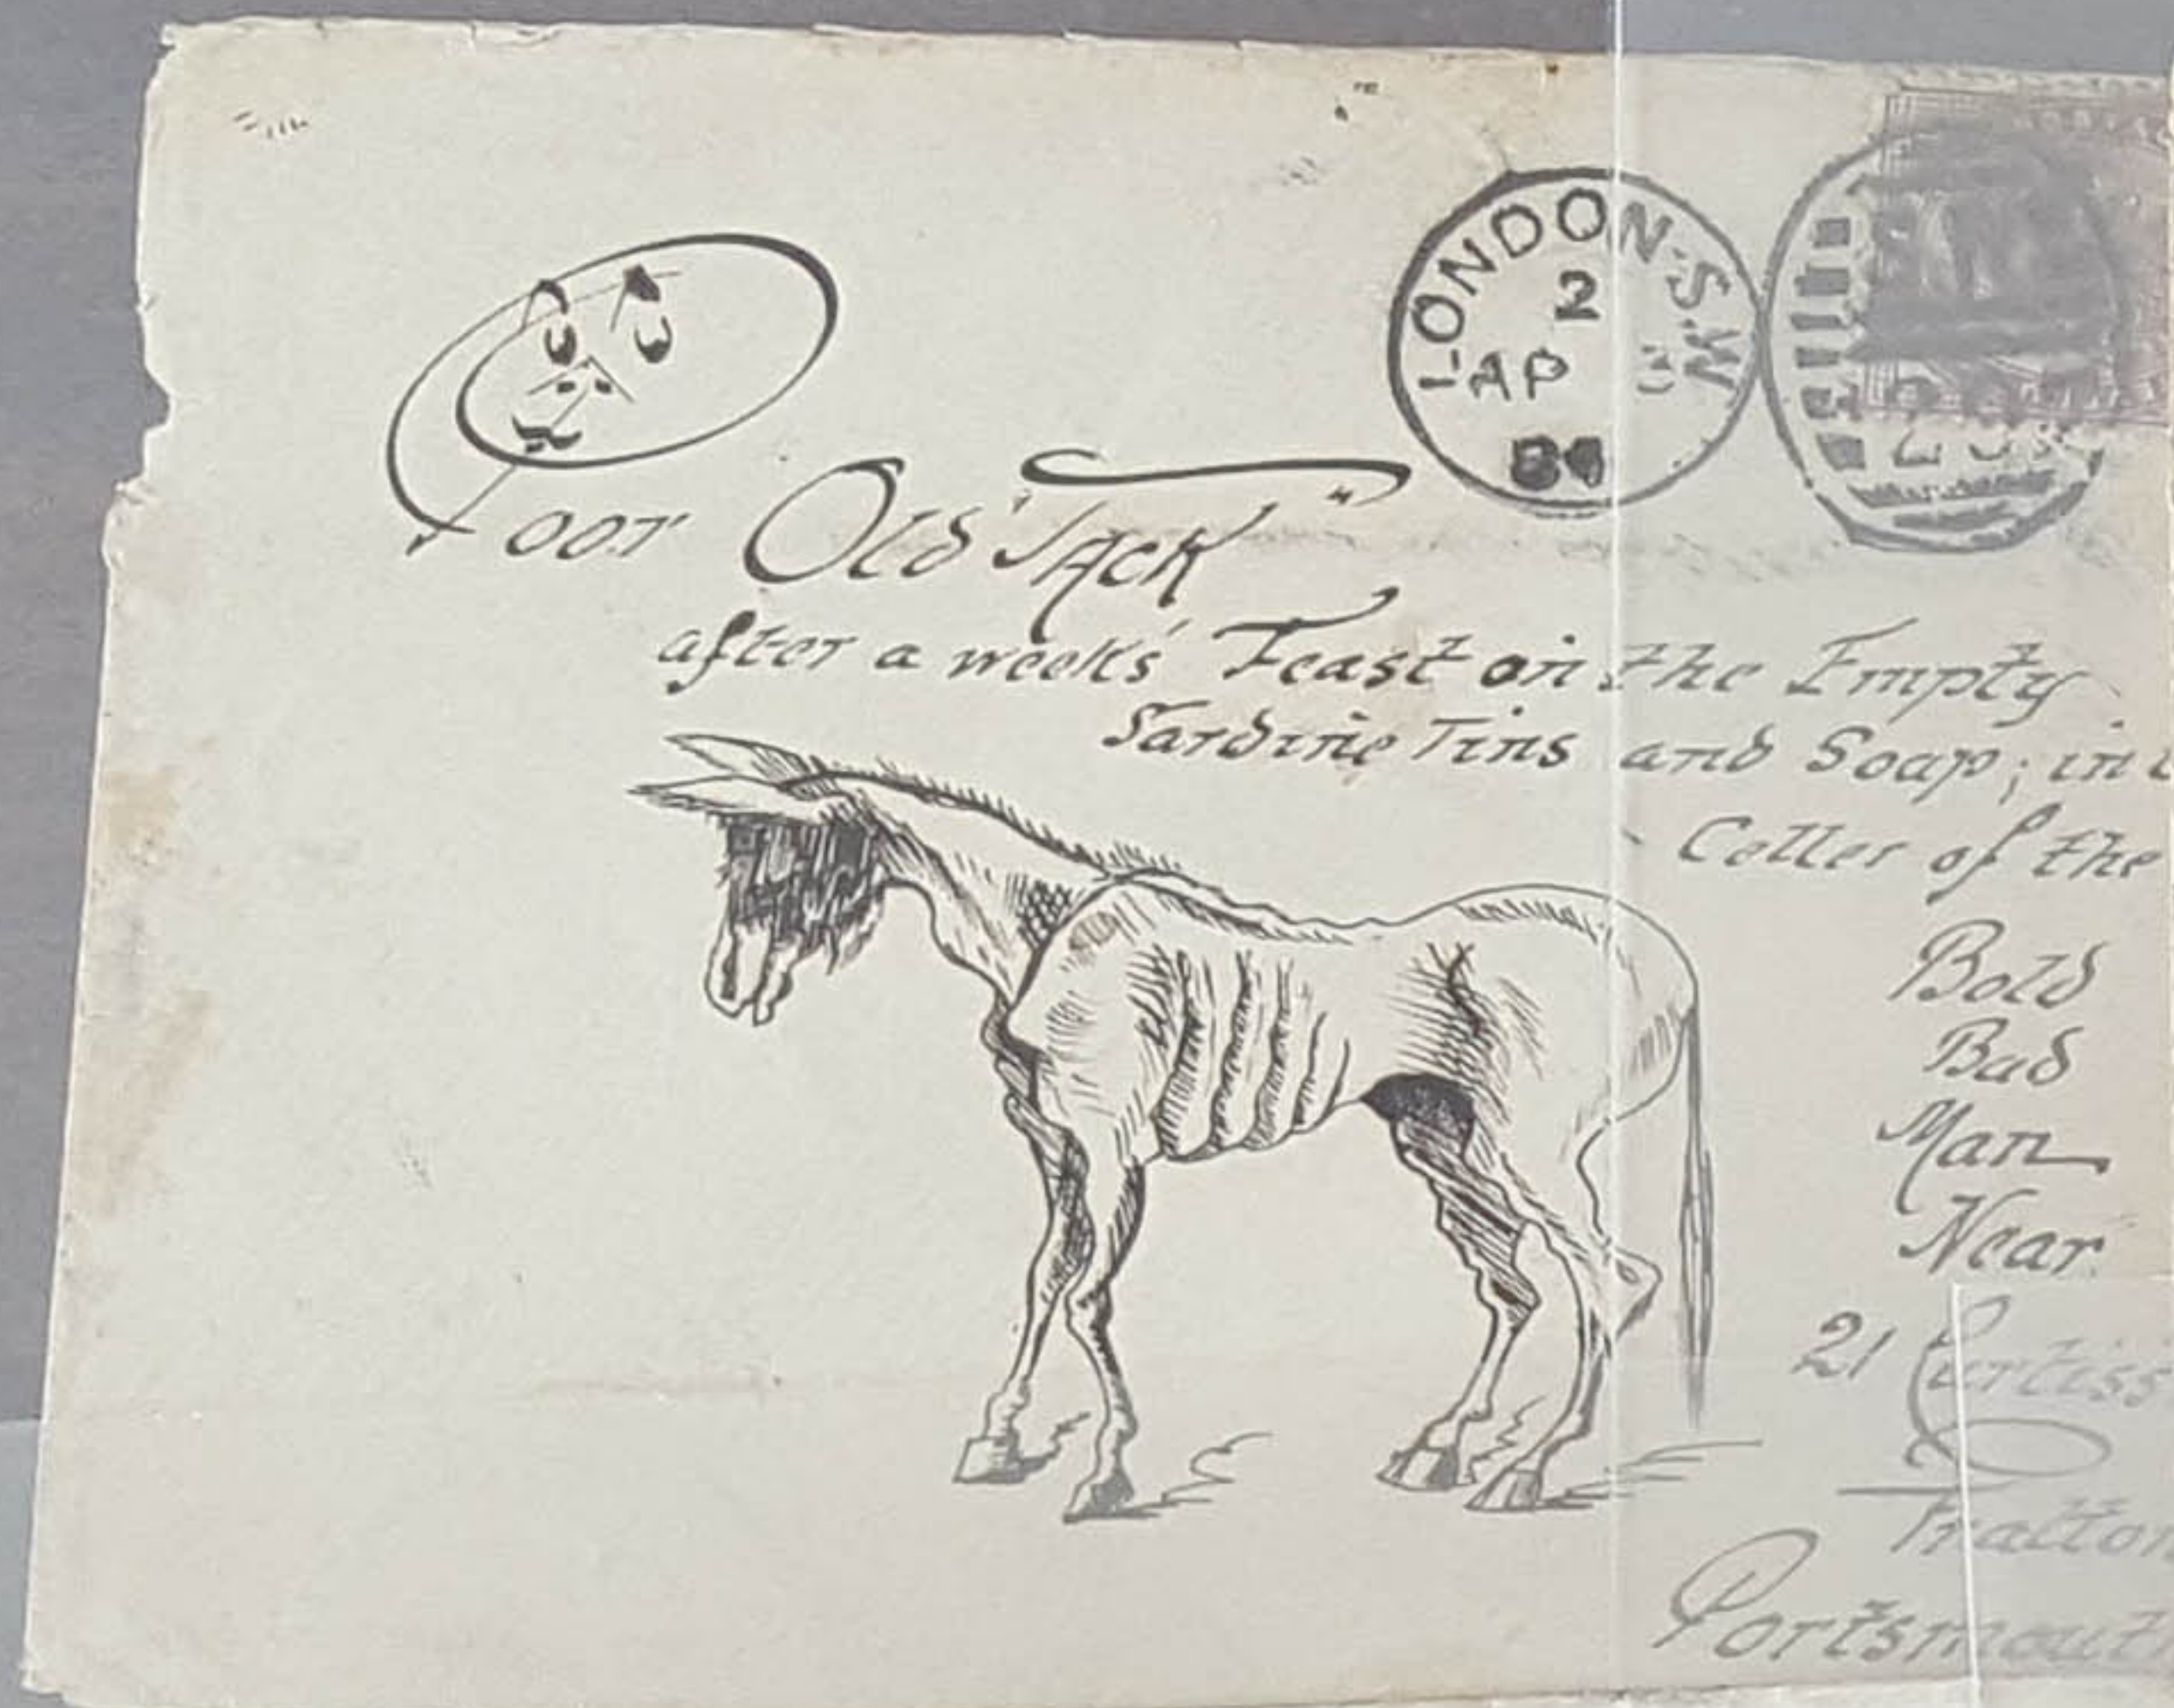 LONDON.S.W
2
AP
Poor Old "Jack"
after a week's Feast on the Empty
Sardine Tins and Soap; in
Celler of the
Bold
Bad
Man
Near
21 Curtiss
Fratton
Portsmouth